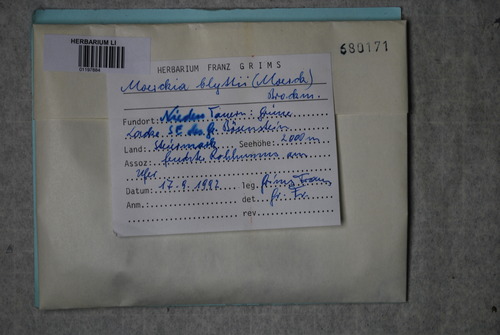 HERBARIUM LI
680171
HERBARIUM FRANZ GRIMS
Moerckia blyttii (Moerck)
Brockm.
Fundort: Niedere Tauern: Grüne
Lacke SE des Gr. Bösenstein
Land: Steiermark Seehöhe: 2000 m
Assoz: feuchter Rohhumus am
Ufer
Datum: 17.9.1982 leg. Grims Franz
Anm.: det. Gr. Fr.
rev.